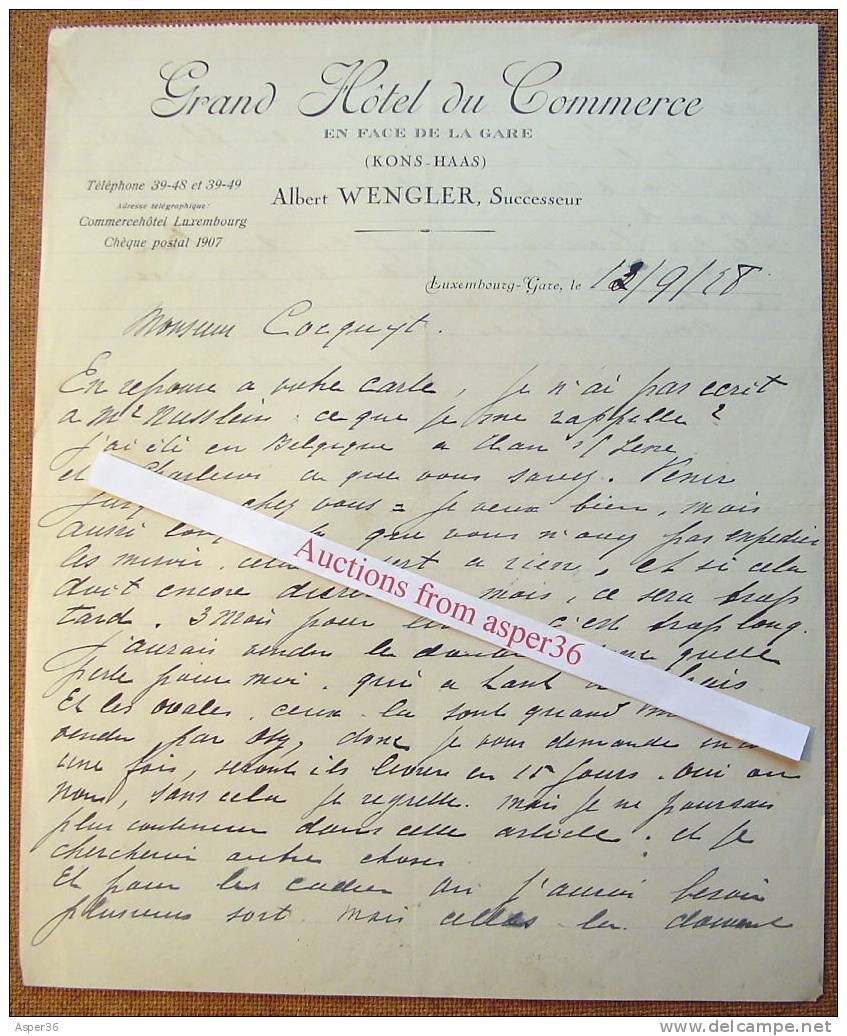 Grand Hôtel du Commerce
EN FACE DE LA GARE
(KONS-HAAS)
Albert WENGLER, Successeur
Téléphone 39-48 et 39-49
Adresse télégraphique:
Commercehôtel Luxembourg
Chèque postal 1907
Luxembourg-Gare, le 13/9/28
Monsieur Cocquyt.
En reponse a votre carte, je n'ai pas ecrit
a Mr Nusslein : ce que je me rappelle ?
j'ai été en Belgique a
et Charleroi a que vous savez. Venir
chez vous = je veux bien, mais
aussi que vous n'avez pas expedier
les miroir, a rien, et si cela
doit encore mois, ce sera trop
tard. 3 mois pour c'est trop long.
j'aurais vendu le quelle
perte pour moi. qui a tant
Et les ovales, ceux la sont quand
vendu par donc je vous demande
une fois, seront ils livrer en 15 jours. oui ou
non, sans cela je regrette. mais je ne pourrais
plus continuer dans cette article. et je
chercherai autre choses
Et pour les cadre ou j'aurai besoin
plusieurs sort. mais celles la
Auctions from asper36
Asper36
www.delcampe.net